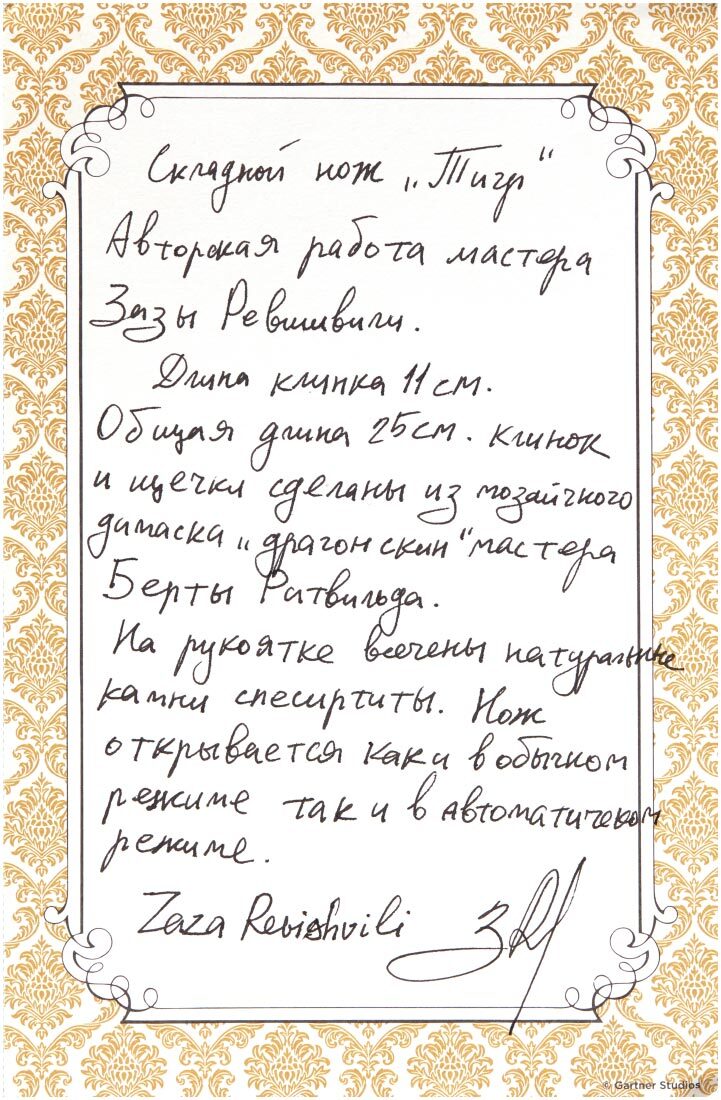 Складной нож „Тигр“
Авторская работа мастера
Зазы Ревишвили.
Длина клинка 11 см.
Общая длина 25см. клинок
и щечки сделаны из мозаичного
дамаска „драгон скин“ мастера
Берты Ритвильда.
На рукоятке всечены натуральные
камни спесиртиты. Нож
открывается как и в обычном
режиме так и в автоматическом
режиме.
Zaza Revishvili ЗR
© Gartner Studios